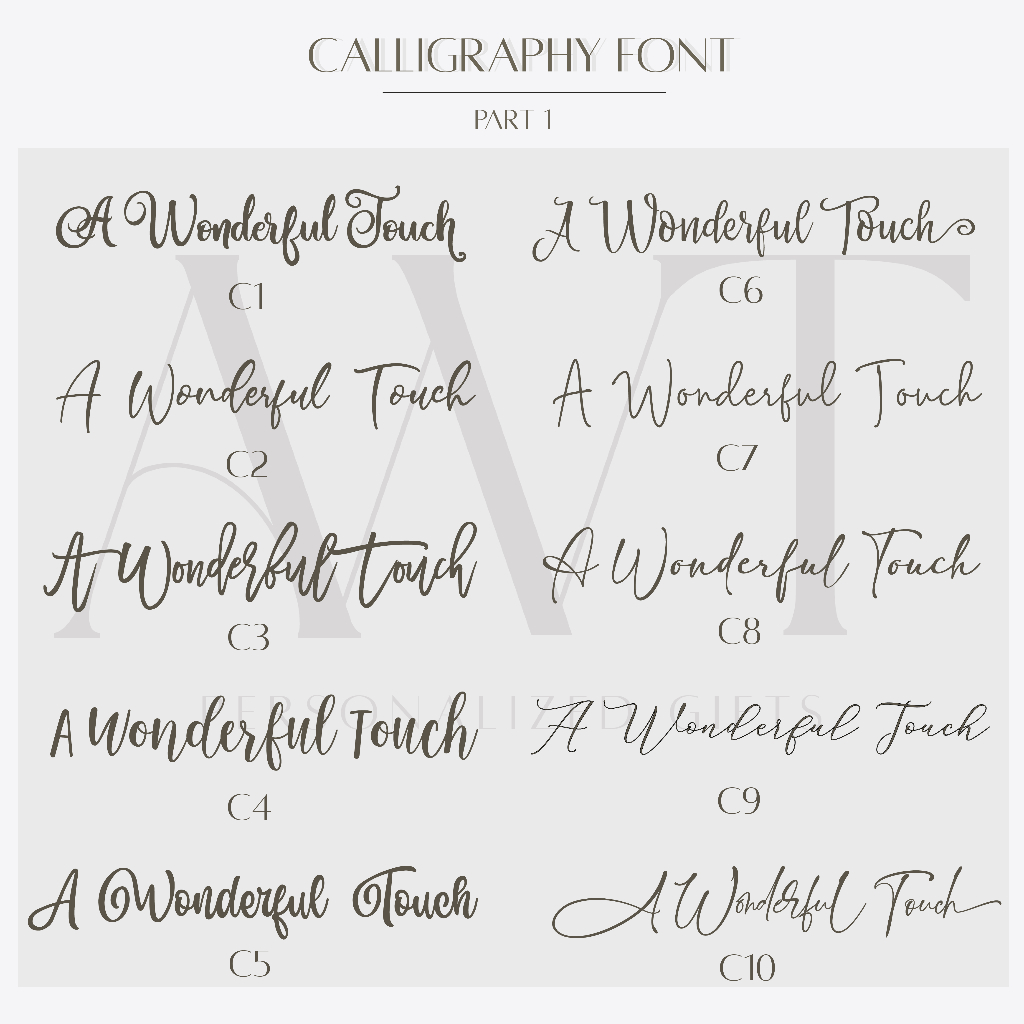 CALLIGRAPHY FONT
PART 1
A Wonderful Touch
C1
A Wonderful Touch
C2
A Wonderful Touch
C3
A Wonderful Touch
C4
A Wonderful Touch
C5
A Wonderful Touch
C6
A Wonderful Touch
C7
A Wonderful Touch
C8
A Wonderful Touch
C9
A Wonderful Touch
C10
AWT
PERSONALIZED GIFTS